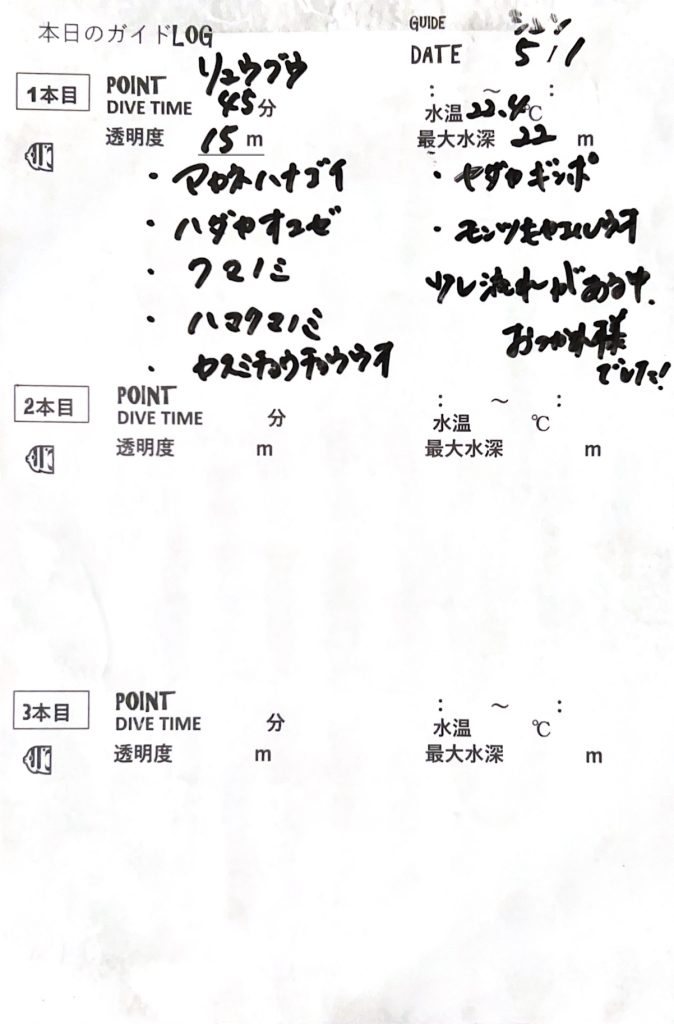 本日のガイドLOG
GUIDE シュン
DATE 5/1
1本目
POINT リュウグウ
DIVE TIME 45分
: ~ :
水温 22.4℃
透明度 15 m
最大水深 22 m
・マカネハナゴイ
・ハダカオコゼ
・クマノミ
・ハマクマノミ
・ヤスミチョウチョウウオ
・ヤダケギンポ
少し流れがある中、
おつかれ様
でした!
2本目
POINT
DIVE TIME 分
: ~ :
水温 ℃
透明度 m
最大水深 m
3本目
POINT
DIVE TIME 分
: ~ :
水温 ℃
透明度 m
最大水深 m